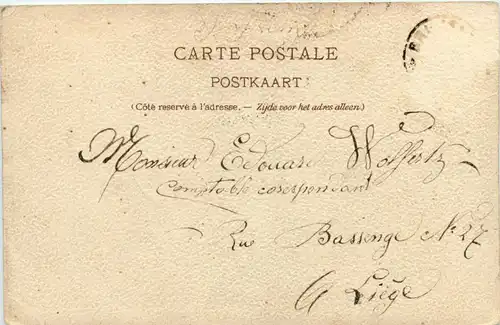 CARTE POSTALE
POSTKAART
(Côté reservé à l'adresse. — Zijde voor het adres alleen.)
Monsieur Edouard
comptable corespondant
Rue Bassenge No 27
A Liège